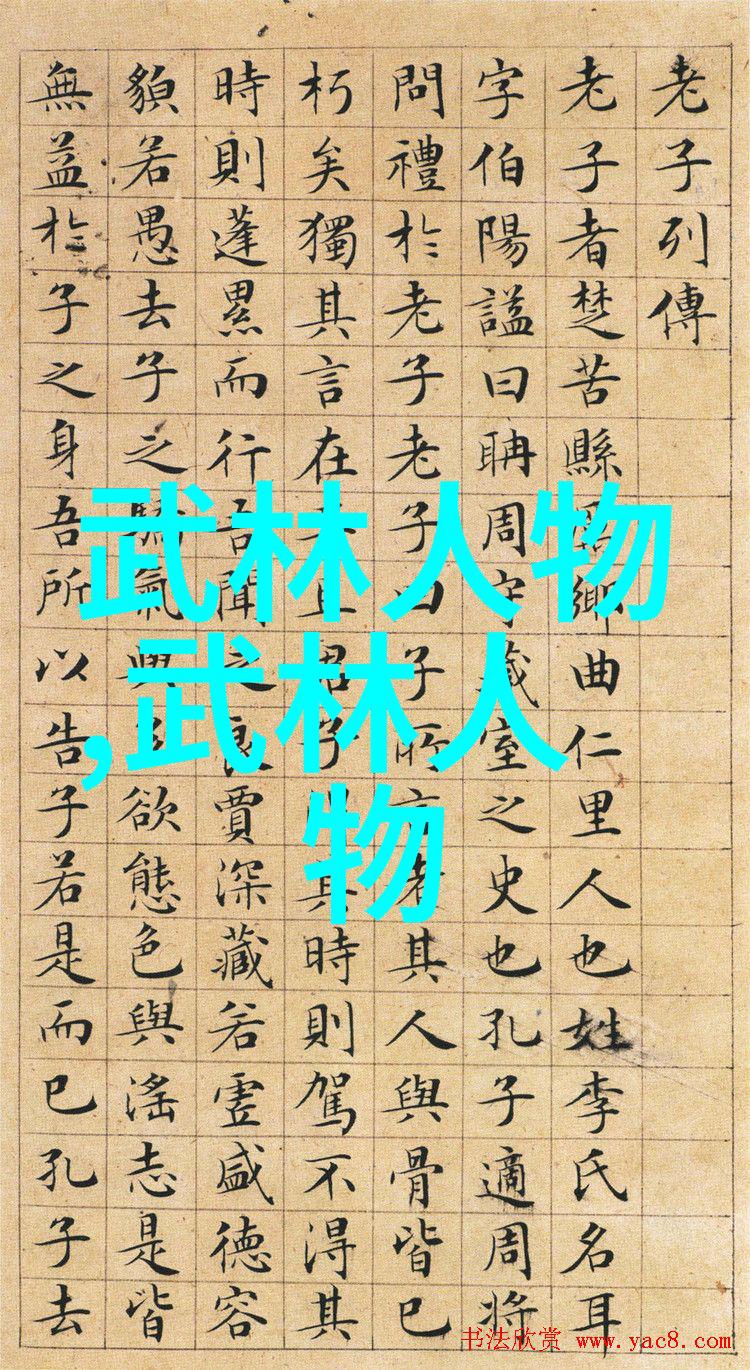 老子列傳
老子者楚苦縣鄉曲仁里人也姓李氏名耳
字伯陽諡曰聃周守藏室之史也孔子適周將
問禮於老子老子曰子所言者其人與骨皆已
朽矣獨其言在且君子其時則駕不得其
時則蓬累而行吾聞之良賈深藏若虛盛德容
貌若愚去子之驕氣與多欲態色與滛志是皆
無益於子之身吾所以告子若是而已孔子去
武林人物
,武林人
物
书法欣赏 www.yac8.com